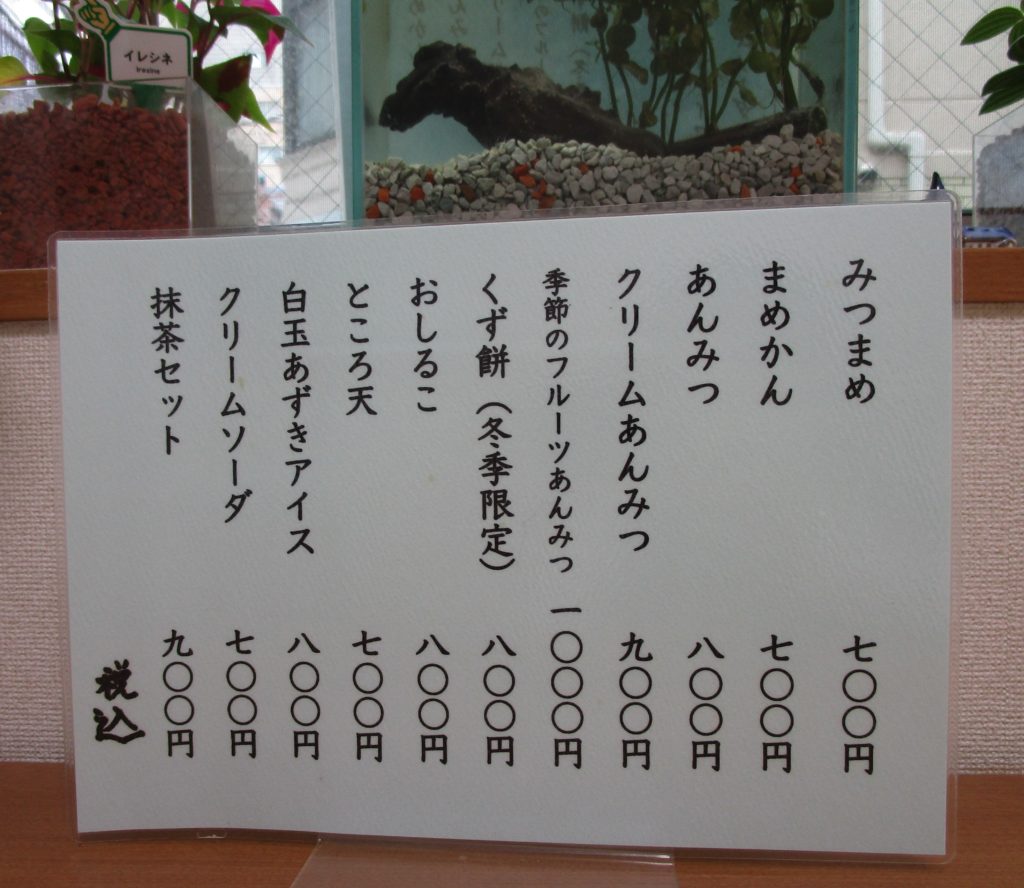 イレシネ
Iresine
みつまめ 七〇〇円
まめかん 七〇〇円
あんみつ 八〇〇円
クリームあんみつ 九〇〇円
季節のフルーツあんみつ 一〇〇〇円
くず餅（冬季限定） 八〇〇円
おしるこ 八〇〇円
ところ天 七〇〇円
白玉あずきアイス 八〇〇円
クリームソーダ 七〇〇円
抹茶セット 九〇〇円
税込